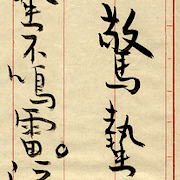 驚蟄
不鳴雷